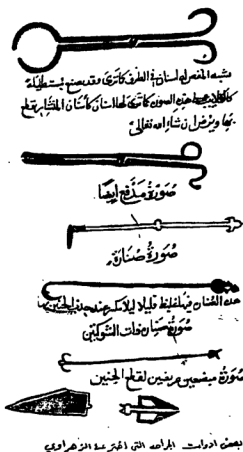 يشبه المقص له أسنان في الطرف كما ترى وقد يصنع
هذه الصورة كما ترى لها أسنان كأسنان المنشار يقطع
بها ويرض إن شاء الله تعالى
صورة مدفع أيضا
صورة صنارة
هذه الصنارة فيها غليظ قليلا لئلا تنكسر عند جذب الجنين بها
صورة صنارة ذات الشوكتين
صورة مبضعين عريضين لقطع الجنين
بعض أدوات الجراحه التي اخترعها الزهراوي